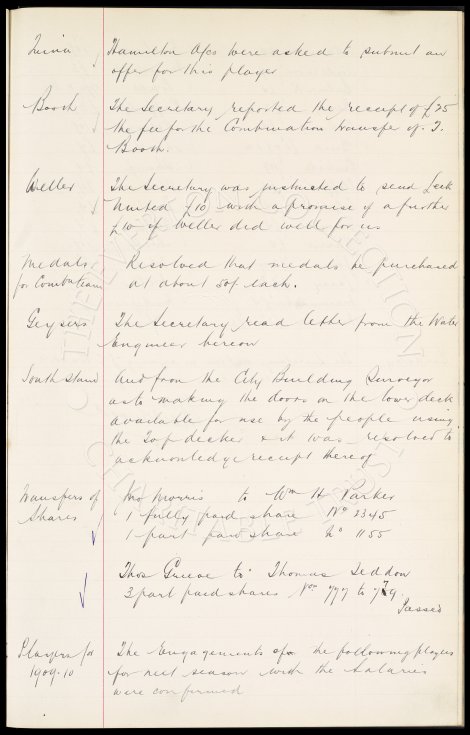 Hamilton Acs were asked to submit an
offer for this player
Booth
The Secretary reported the receipt of £25
the fee for the Combination transfer of T.
Booth.
Weller
The Secretary was instructed to send Leek
United £10 with a promise of a further
£10 if Weller did well for us
Medals
for Combn team
Resolved that medals be purchased
at about 50/ each.
Geysers
The Secretary read letter from the Water
Engineer hereon
South Stand
And from the City Building Surveyor
as to making the doors on the lower deck
available for use by the people using
the Top decker & it was resolved to
acknowledge receipt thereof
Transfers of
Shares
Morris to Wm H Parker
1 fully paid share No 2345
1 part paid share No 1155
Thos Greene to Thomas Seddon
3 part paid shares Nos 777 to 779.
Passed
Players for
1909-10
The Engagements of the following players
for next season with the Salaries
were confirmed
THE EVERTON COLLECTION
CHARITABLE TRUST